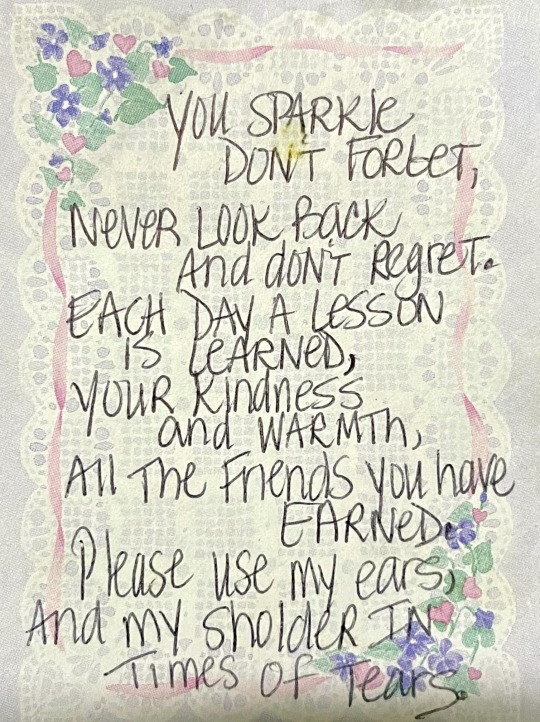 You SPARKle
DON'T FORGET,
NEVER LOOK Back
And don't RegreT.
EACH DAY A LESSON
IS LEARNED,
YOUR Kindness
and WARMTh,
All The Friends you have
EARNED.
Please use my ears,
And my sholder IN
Times of Tears.